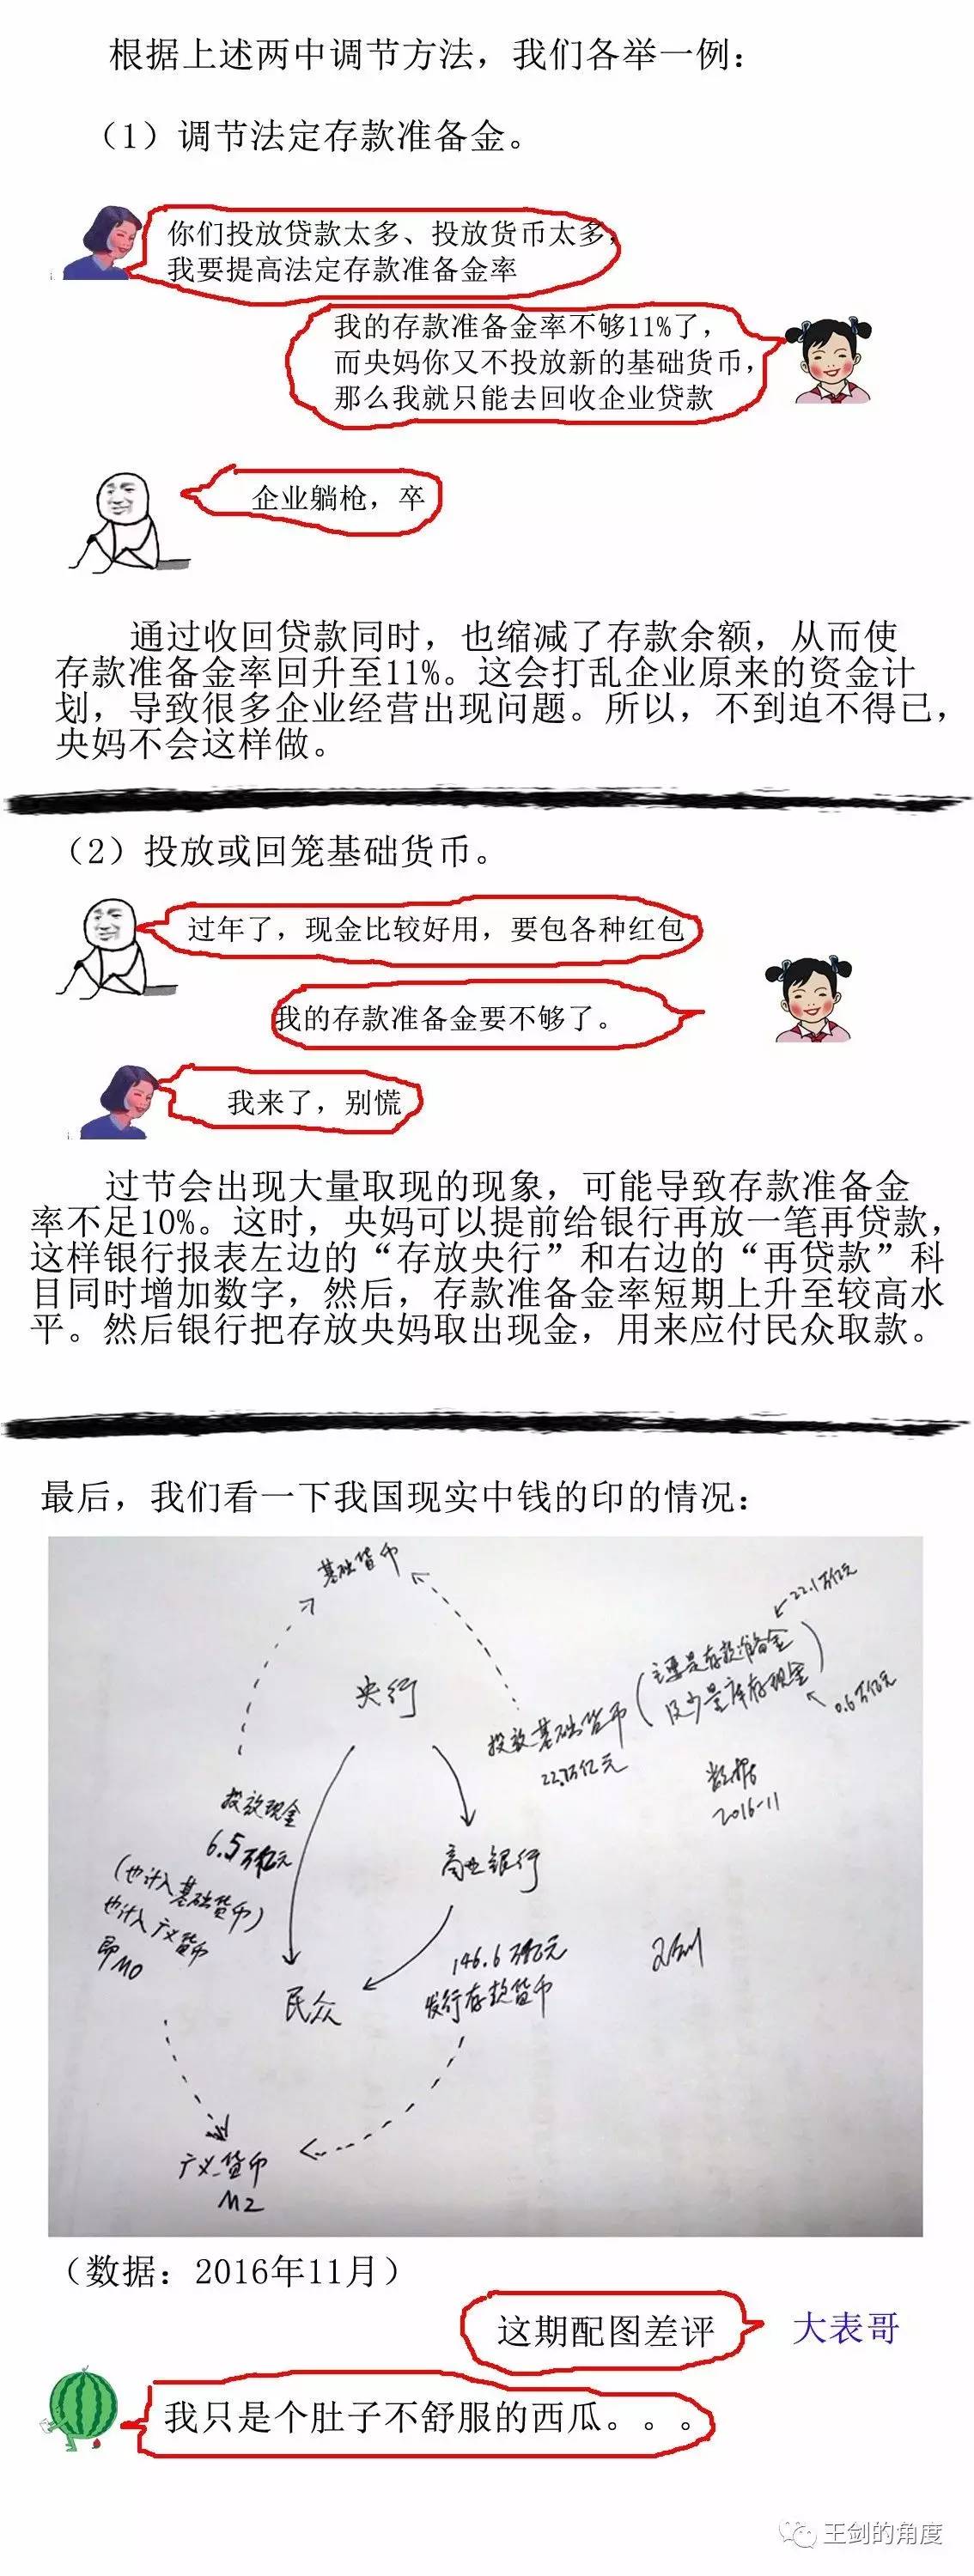 根据上述两中调节方法，我们各举一例：
（1）调节法定存款准备金。
你们投放贷款太多、投放货币太多，
我要提高法定存款准备金率
我的存款准备金率不够11%了，
而央妈你又不投放新的基础货币，
那么我就只能去回收企业贷款
企业躺枪，卒
通过收回贷款同时，也缩减了存款余额，从而使
存款准备金率回升至11%。这会打乱企业原来的资金计
划，导致很多企业经营出现问题。所以，不到迫不得已，
央妈不会这样做。
（2）投放或回笼基础货币。
过年了，现金比较好用，要包各种红包
我的存款准备金要不够了。
我来了，别慌
过节会出现大量取现的现象，可能导致存款准备金
率不足10%。这时，央妈可以提前给银行再放一笔再贷款，
这样银行报表左边的“存放央行”和右边的“再贷款”科
目同时增加数字，然后，存款准备金率短期上升至较高水
平。然后银行把存放央妈取出现金，用来应付民众取款。
最后，我们看一下我国现实中钱的印的情况：
基础货币
22.1万亿元
央行
（主要是存款准备金
及少量库存现金）
0.6万亿元
投放基础货币
22.7万亿元
数据
2016-11
投放现金
6.5万亿元
（也计入基础货币）
也计入广义货币
即M0
商业银行
146.6万亿元
发行存款货币
民众
广义货币
M2
（数据：2016年11月）
这期配图差评
大表哥
我只是个肚子不舒服的西瓜。。。
王剑的角度